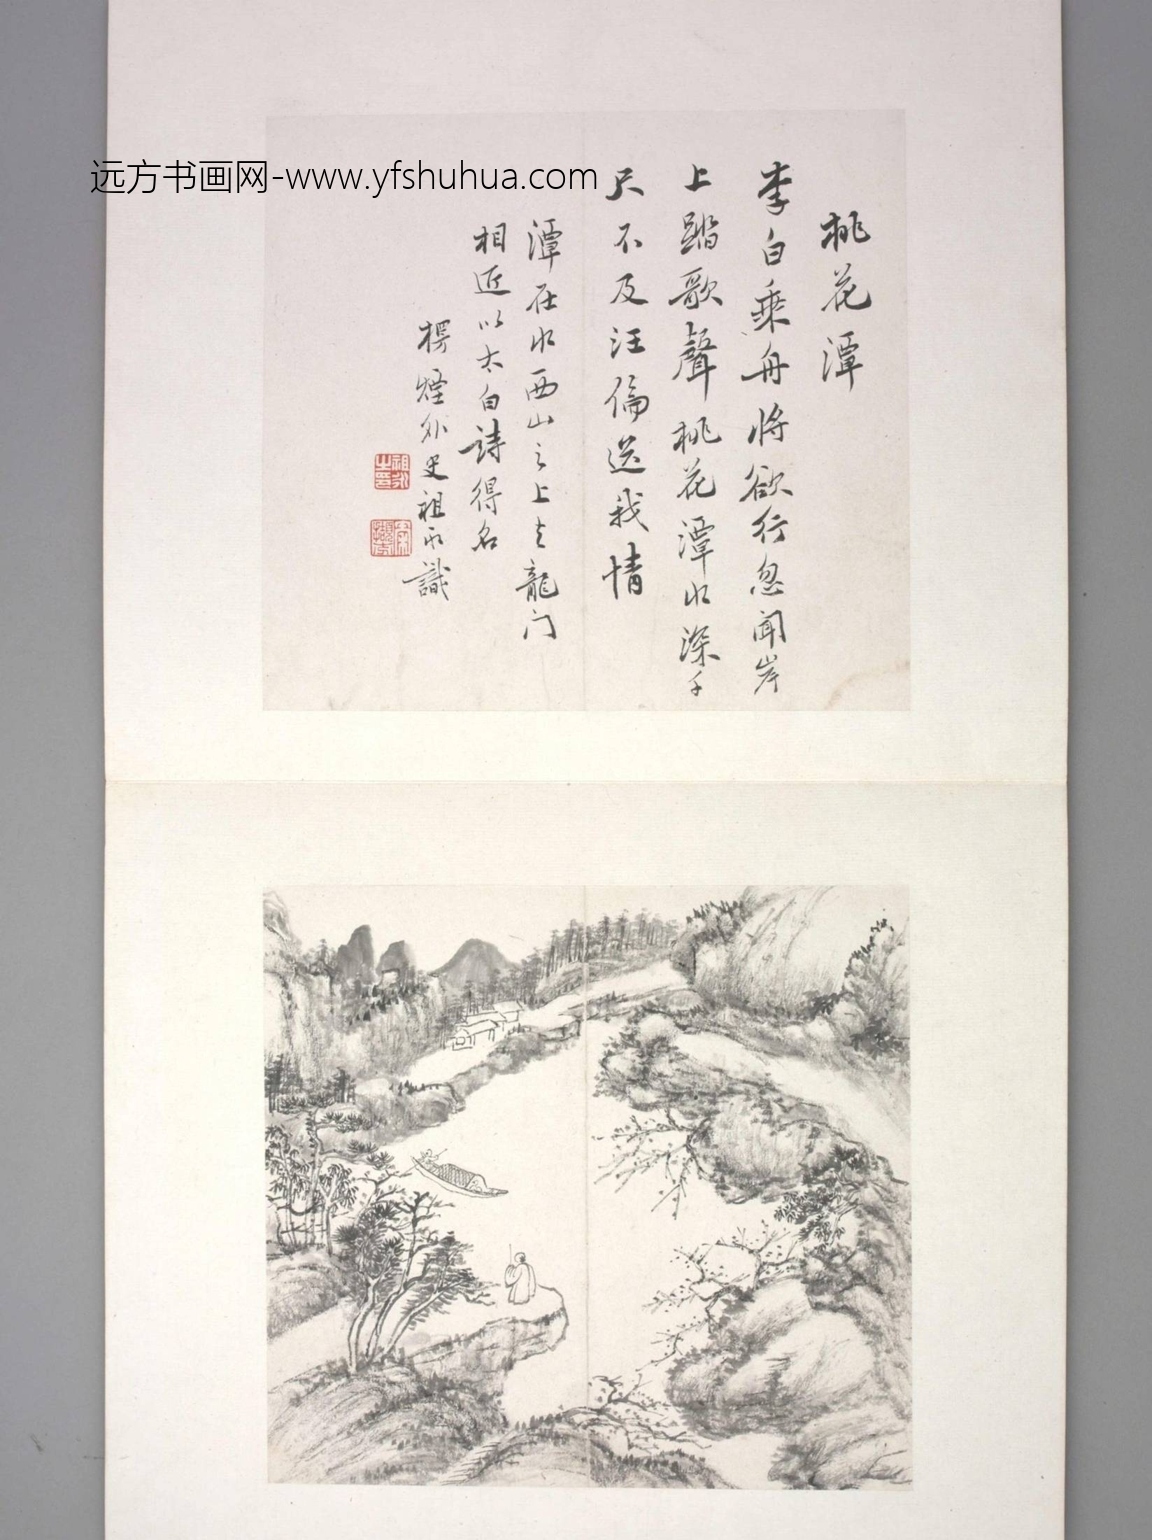 远方书画网-www.yfshuhua.com
桃花潭
李白乘舟将欲行忽闻岸
上踏歌聲桃花潭水深千
尺不及汪倫送我情
潭在水西山之上去龍门
相近以太白詩得名
楞煙外史祖永識